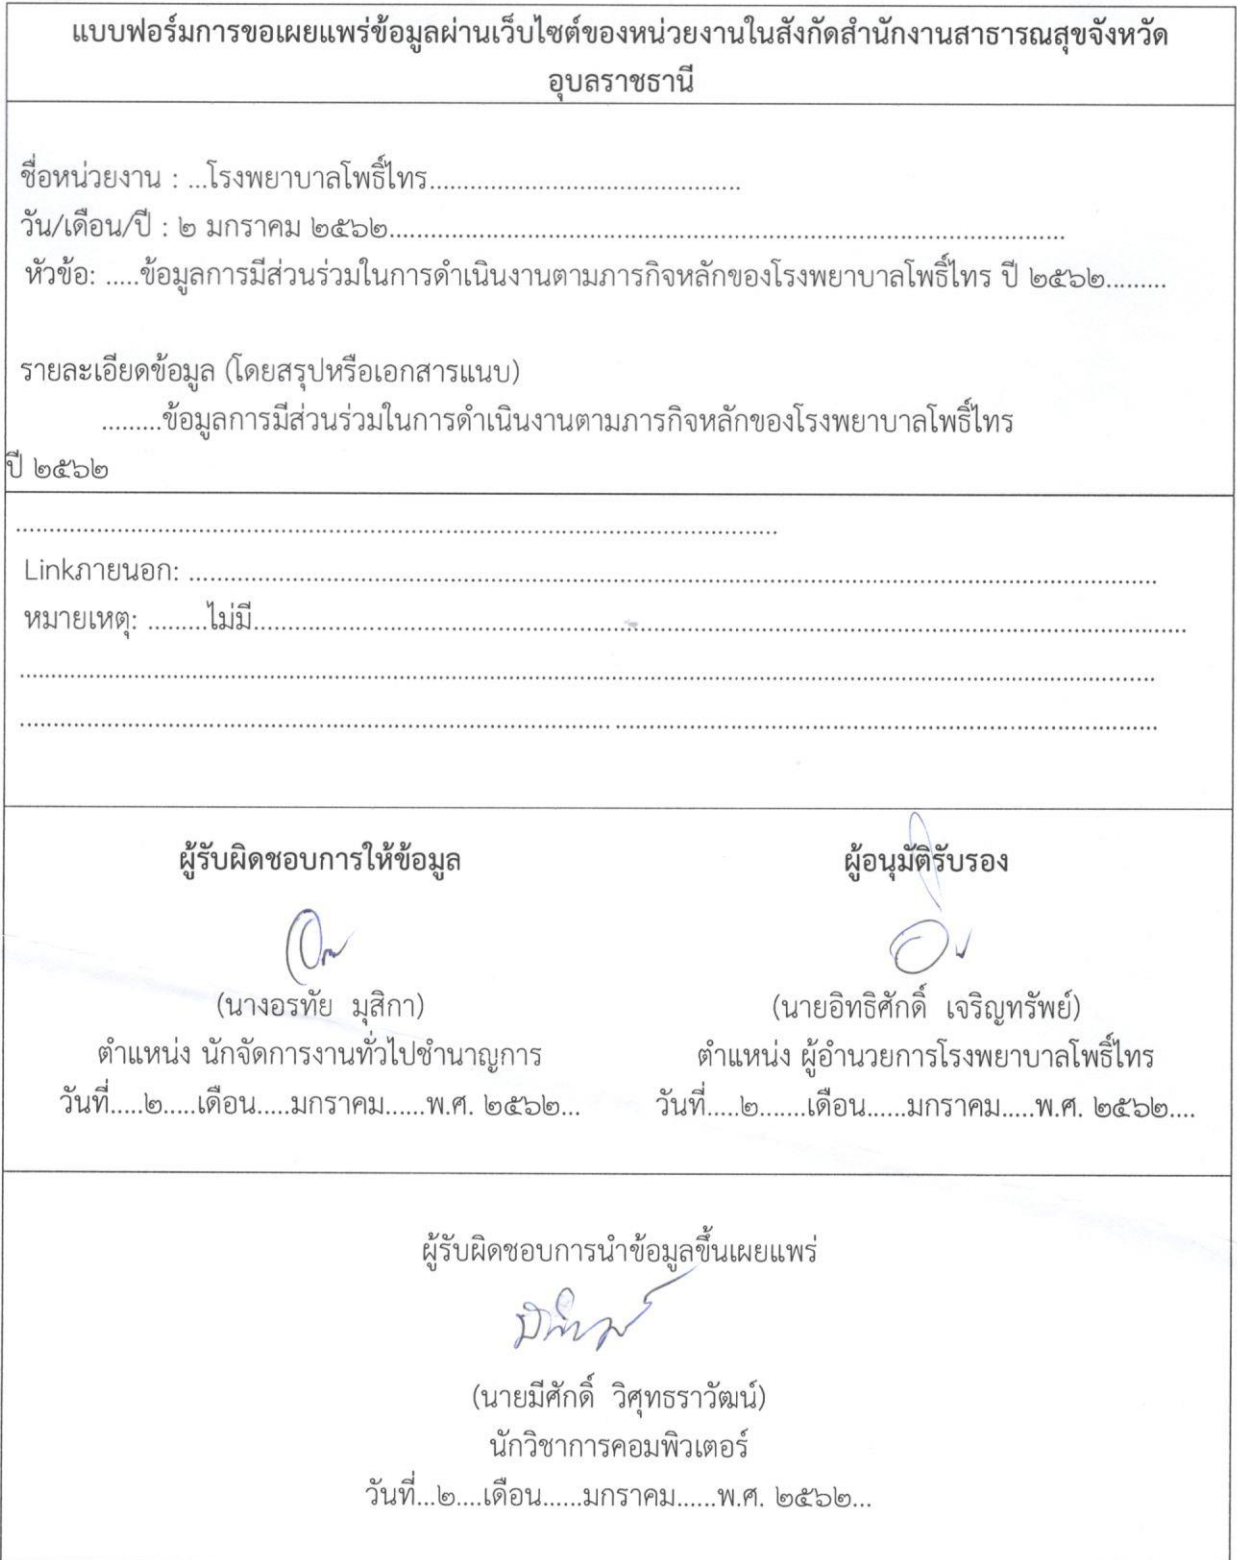 แบบฟอร์มการขอเผยแพร่ข้อมูลผ่านเว็บไซต์ของหน่วยงานในสังกัดสำนักงานสาธารณสุขจังหวัด
อุบลราชธานี
ชื่อหน่วยงาน : ...โรงพยาบาลโพธิ์ไทร.............................................
วัน/เดือน/ปี : ๒ มกราคม ๒๕๖๒....................................................................................................
หัวข้อ: .....ข้อมูลการมีส่วนร่วมในการดำเนินงานตามภารกิจหลักของโรงพยาบาลโพธิ์ไทร ปี ๒๕๖๒.........
รายละเอียดข้อมูล (โดยสรุปหรือเอกสารแนบ)
.........ข้อมูลการมีส่วนร่วมในการดำเนินงานตามภารกิจหลักของโรงพยาบาลโพธิ์ไทร
ปี ๒๕๖๒
Linkภายนอก: ................................................................................................
หมายเหตุ: .........ไม่มี................................................................................................
ผู้รับผิดชอบการให้ข้อมูล ผู้อนุมัติรับรอง
(นางอรทัย มุสิกา) (นายอิทธิศักดิ์ เจริญทรัพย์)
ตำแหน่ง นักจัดการงานทั่วไปชำนาญการ ตำแหน่ง ผู้อำนวยการโรงพยาบาลโพธิ์ไทร
วันที่.....๒.....เดือน.....มกราคม......พ.ศ. ๒๕๖๒... วันที่.....๒.......เดือน......มกราคม.....พ.ศ. ๒๕๖๒....
ผู้รับผิดชอบการนำข้อมูลขึ้นเผยแพร่
(นายมีศักดิ์ วิศุทธราวัฒน์)
นักวิชาการคอมพิวเตอร์
วันที่...๒....เดือน......มกราคม......พ.ศ. ๒๕๖๒...